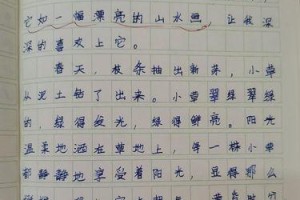 它如一幅漂亮的山水画，让我深
深的喜欢上它。
春天，枝条抽出新芽，小草
从泥土钻了出来。小草翠绿翠绿
的，绿得发光，绿得鲜亮。阳光
温柔地洒在草地上，每一棵小草
都静静地享受着阳光，显得那么